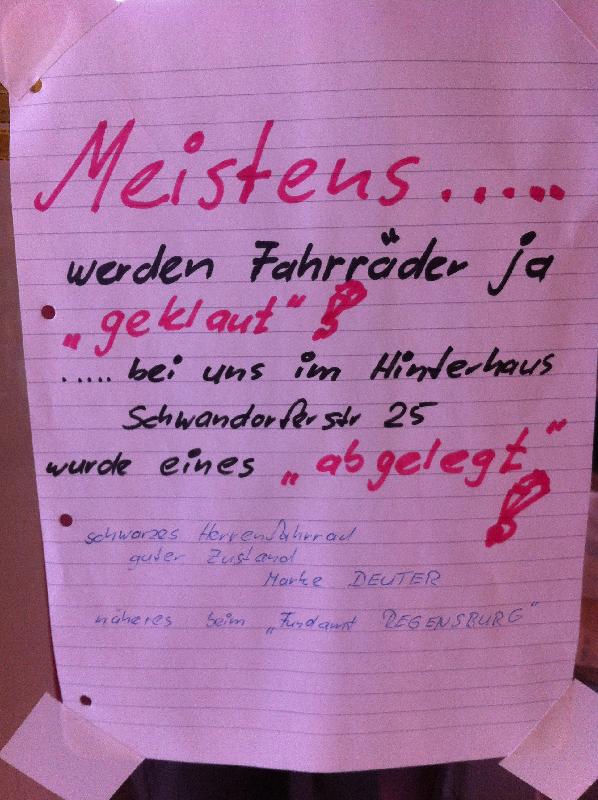 Meistens.....
werden Fahrräder ja
„geklaut"!
..... bei uns im Hinterhaus
Schwandorferstr 25
wurde eines „abgelegt"!
schwarzes Herrenfahrrad
guter Zustand
Marke DEUTER
näheres beim „Fundamt REGENSBURG"